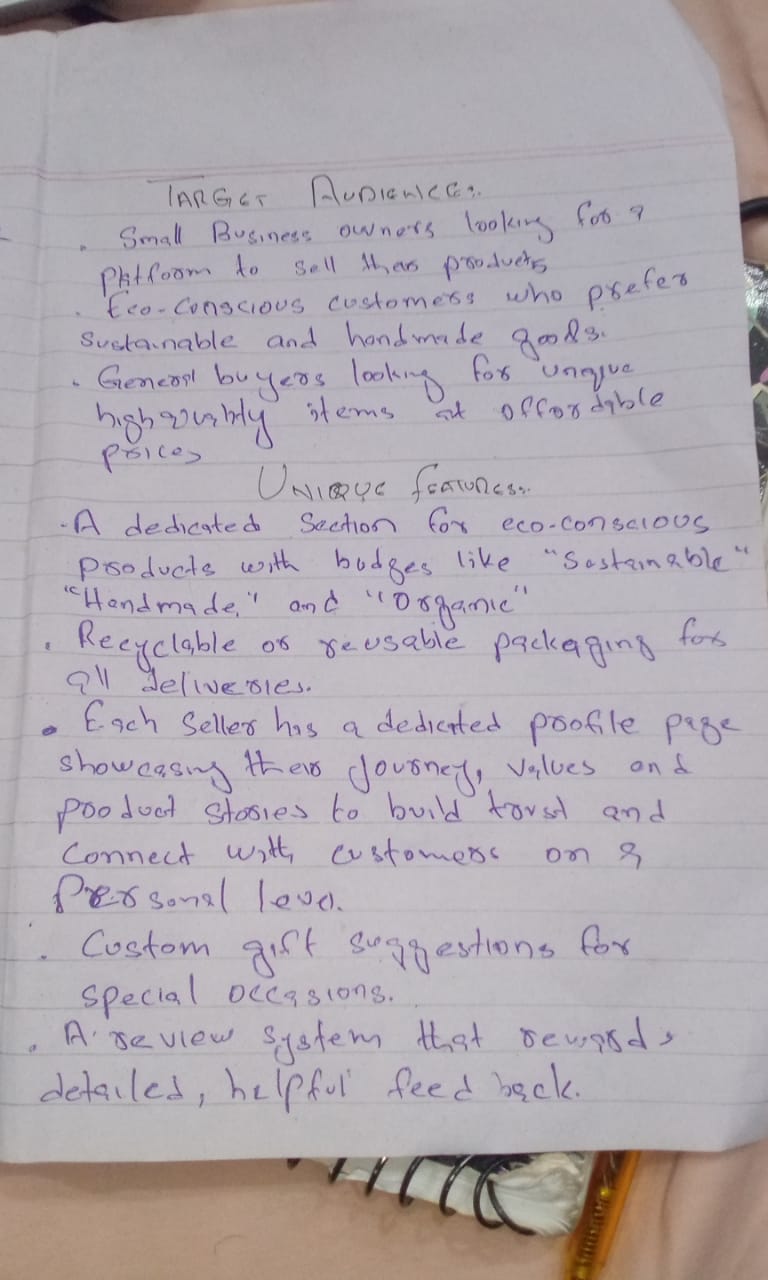 TARGET AUDIENCE:
. Small Business owners looking for a
platform to sell their products
. Eco-conscious customers who prefer
sustainable and handmade goods.
. General buyers looking for unique
high quality items at affordable
prices
UNIQUE FEATURES:
. A dedicated section for eco-conscious
products with badges like "Sustainable"
"Handmade," and "Organic"
. Recyclable or reusable packaging for
all deliveries.
. Each Seller has a dedicated profile page
showcasing their Journey, values and
product stories to build trust and
connect with customers on a
Personal level.
. Custom gift suggestions for
special occasions.
. A review system that rewards
detailed, helpful feed back.